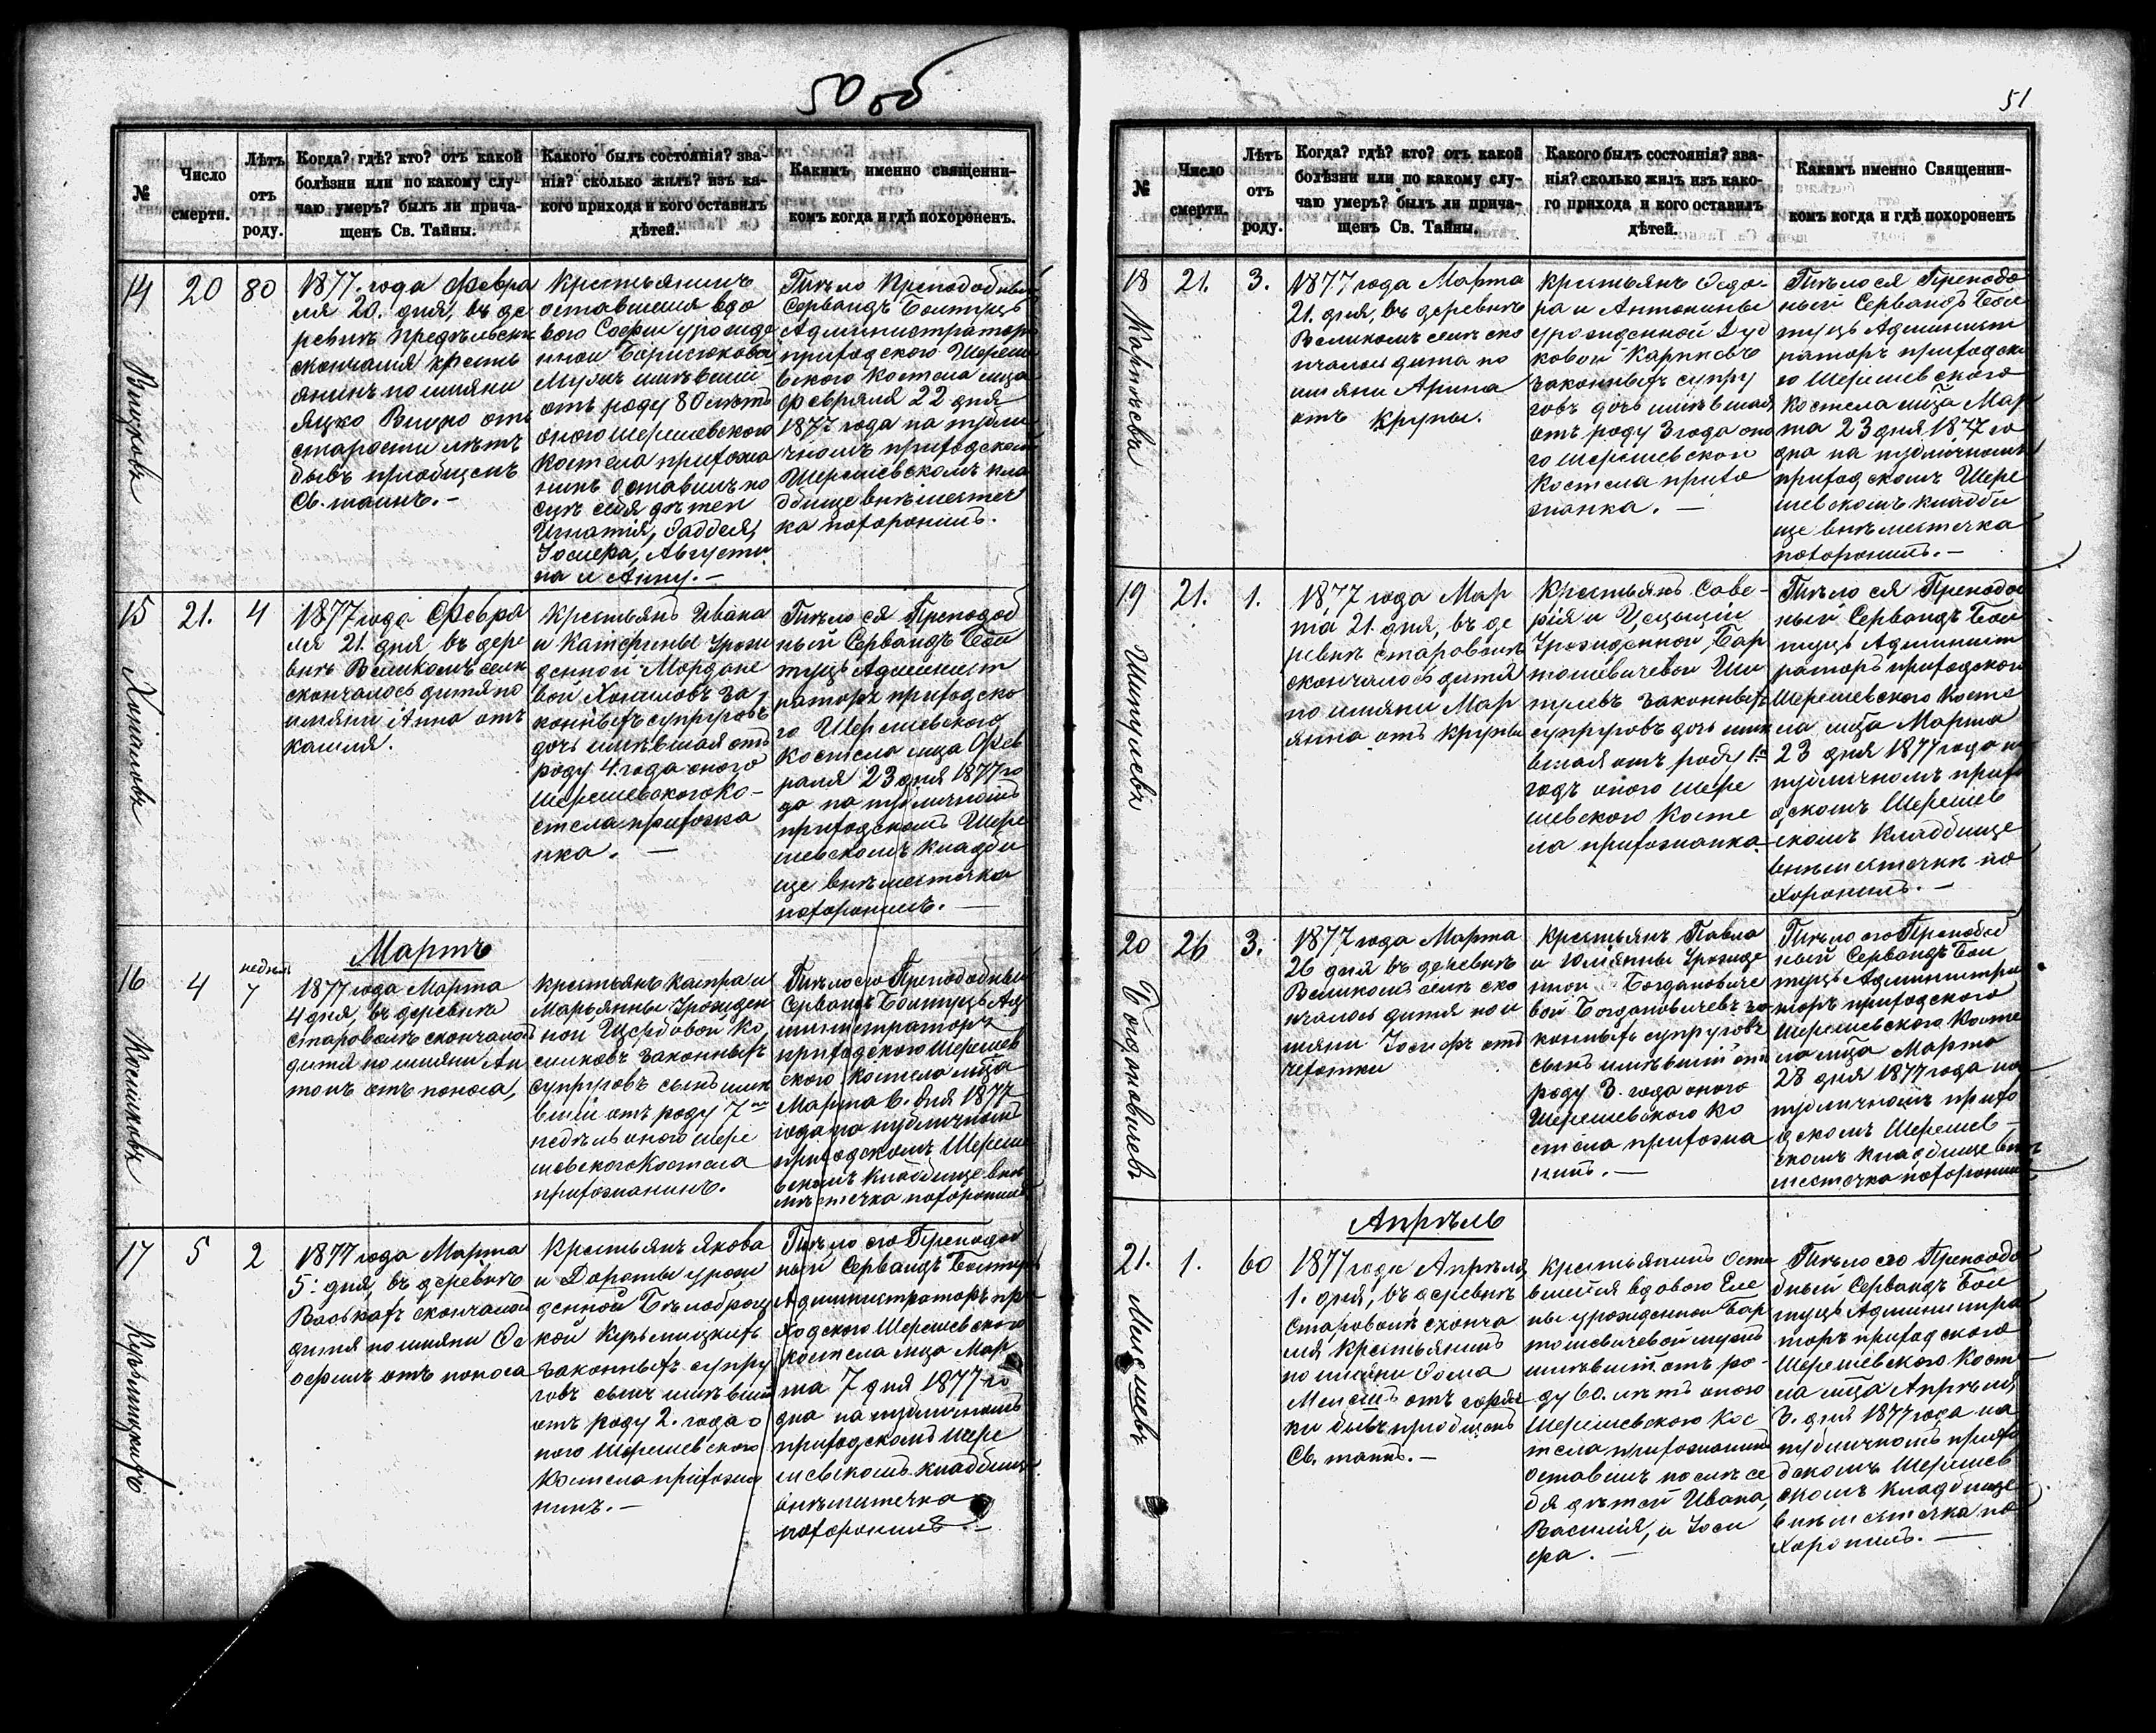 50 об
№
Число
смерти.
Лѣтъ
отъ
роду.
Когда? гдѣ? кто? отъ какой
болѣзни или по какому слу-
чаю умеръ? былъ ли прича-
щенъ Св. Тайны.
Какого былъ состоянія? зва-
нія? сколько жилъ? изъ ка-
кого прихода и кого оставилъ
дѣтей.
Какимъ именно священни-
комъ когда и гдѣ похороненъ.
14
20
80
1877. года Февра
ля 20. дня, въ де
ревнѣ
скончался кресть
янинъ по имяни
Яцко отъ
старости лѣтъ
бывъ приобщенъ
Св. таинъ. -
Крестьянинъ
оставшейся вдо
вою Софіи урожде
нной Борисюковой
Мужъ имѣвшій
отъ роду 80 лѣтъ
оного Шерешевского
Костела прихожа
нинъ оставилъ по
слѣ себя дѣтей
Игнатія, Фаддея,
Іосифа, Августи
на и Анну. -
Тѣло Преподобный
Сервандъ Болтуць
Администраторъ
приходского Шереше
вского Костела мца
Февраля 22 дня
1877 года на публи
чномъ приходскомъ
Шерешевскомъ кла
дбище внѣ местеч
ка похоронилъ.
15
21.
4
1877 года Февра
ля 21. дня, въ дере
внѣ Великомъ селѣ
скончалось дитя по
имяни Анна отъ
кашля.
Крестьянъ Ивана
и Катерины Урож
денной Мордаче
вой за
конныхъ супруговъ
дочь имѣвшая отъ
роду 4. года оного
Шерешевского Ко-
стела прихожа
нка. -
Тѣло ея Преподоб
ный Сервандъ Бол
туць Админист
раторъ приходско
го Шерешевского
Костела мца Фев
раля 23 дня 1877 го
да на публичномъ
приходскомъ Шере
шевскомъ кладби
ще внѣ местечка
похоронилъ. -
Мартъ
16
4
недѣль
7
1877 года Марта
4 дня, въ деревнѣ
Староволѣ скончалось
дитя по имяни Ан
тонъ отъ поноса,
Крестьянъ Каспра и
Марьянны Урожден
ной Щербовой Ко
сиковъ законныхъ
супруговъ сынъ имѣ
вшій отъ роду 7
недѣль оного Шере
шевского Костела
прихожанинъ.
Тѣло его Преподобный
Сервандъ Болтуць Ад
министраторъ
приходского Шерешев
ского Костела мца
Марта 6. дня 1877
года на публичномъ
приходскомъ Шереше
вскомъ кладбище внѣ
местечка похоронилъ
17
5
2
1877 года Марта
5. дня, въ деревнѣ
Васькахъ скончалось
дитя по имяни Ос
офилъ отъ поноса
Крестьянъ Якова
и Дороты урож
денной Бѣлобрац
кой
законныхъ супру
говъ сынъ имѣвшій
отъ роду 2. года о
ного Шерешевского
Костела прихожа
нинъ. -
Тѣло его Преподоб
ный Сервандъ Болтуць
Администраторъ при
ходского Шерешевского
костела мца Мар
та 7 дня 1877 го
да на публичномъ
приходскомъ Шере
шевскомъ кладбище
внѣ местечка
похоронилъ. -
51
№
Число
смерти.
Лѣтъ
отъ
роду.
Когда? гдѣ? кто? отъ какой
болѣзни или по какому слу-
чаю умеръ? былъ ли прича-
щенъ Св. Тайны.
Какого былъ состоянія? зва-
нія? сколько жилъ изъ како-
го прихода и кого оставилъ
дѣтей.
Какимъ именно Священни-
комъ когда и гдѣ похороненъ
18
Карпѣевъ
21.
3.
1877 года Марта
21. дня, въ деревнѣ
Великомъ селѣ ско
нчалось дитя по
имяни Арина
отъ крупы.
Крестьянъ Федо-
ра и Антонины
урожденной Дуд
ковой Карпѣевъ
законныхъ супру
говъ дочь имѣвшая
отъ роду 3 года оно
го Шерешевского
Костела прихо
жанка. -
Тѣло ея Преподо
бный Сервандъ Бол
туць Админист
раторъ приходско
го Шерешевского
Костела мца Мар
та 23 дня 1877 го
да на публичномъ
приходскомъ Шере
шевскомъ кладби
ще внѣ местечка
похоронилъ. -
19
Шитулевъ
21.
1.
1877 года Мар
та 21. дня, въ де
ревнѣ Староволѣ
скончалось дитя
по имяни Мар
янна отъ крупы
Крестьянъ Саве-
рія и Уршули
Урожденной Бар
тошевичевой Ши
тулевъ законныхъ
супруговъ дочь имѣ
вшая отъ роду 1
годъ оного Шере
шевского Косте
ла прихожанка.
Тѣло ея Преподоб
ный Сервандъ Бол
туць Админист
раторъ приходского
Шерешевского Косте
ла мца Марта
23 дня 1877 года на
публичномъ прихо
дскомъ Шерешев
скомъ Кладбище
внѣ местечка по
хоронилъ. -
20
Богдановичевъ
26
3.
1877 года Марта
26 дня въ деревнѣ
Великомъ селѣ ско
нчалось дитя по и
мяни Іосифъ отъ
чехотки
Крестьянъ Павла
и Юлянны Урожде
нной Богдановиче
вой Богдановичевъ за
конныхъ супруговъ
сынъ имѣвшій отъ
роду 3. года оного
Шерешевского Ко
стела прихожа
нинъ. -
Тѣло его Преподоб
ный Сервандъ Бол
туць Администра
торъ приходского
Шерешевского Косте
ла мца Марта
28 дня 1877 года на
публичномъ прихо
дскомъ Шерешев-
скомъ кладбище внѣ
местечка похоронилъ
Апрѣль
21.
1.
60
1877 года Апрѣля
1. дня, въ деревнѣ
Староволѣ сконча
лся Крестьянинъ
по имяни Фома
отъ горяч
ки бывъ приобщенъ
Св. таинъ. -
Крестьянинъ Оста
вшейся вдовою Еле
ны урожденной Бар
тошевичевой мужъ
имѣвшій отъ ро-
ду 60. лѣтъ оного
Шерешевского Кос
тела прихожанинъ
оставилъ послѣ се
бя дѣтей Ивана,
Василія, и Іоси
фа. -
Тѣло его Преподо
бный Сервандъ Бол
туць Администра
торъ приходского
Шерешевского Косте
ла мца Апрѣля
3. дня 1877 года на
публичномъ прихо
дскомъ Шерешев
скомъ Кладбище
внѣ местечка по
хоронилъ. -